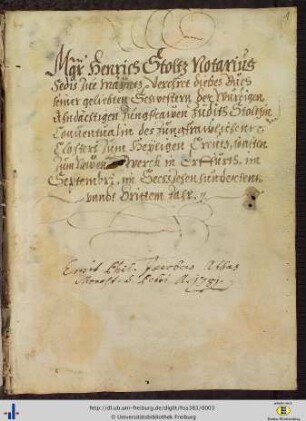 Mgr Henrics Stoltz Notarius
Sedis zue Maintz, Verehret dieses
seiner geliebten Schwestern, der Würdigen
Andächtigen Jungfrawen Judith Stoltzin
Conventualin des Jungfrawlichenn
Closters zum Heyligen Creutz,
zum Werck in Erffurth, im
Septembri, im Sechszehenhunderten
unndt Dritten Jahr.
Emit Phil. Jacobus Abbas
Monast. S. Petri A. 1781.
http://dl.ub.uni-freiburg.de/diglit/hs381/0003
© Universitätsbibliothek Freiburg